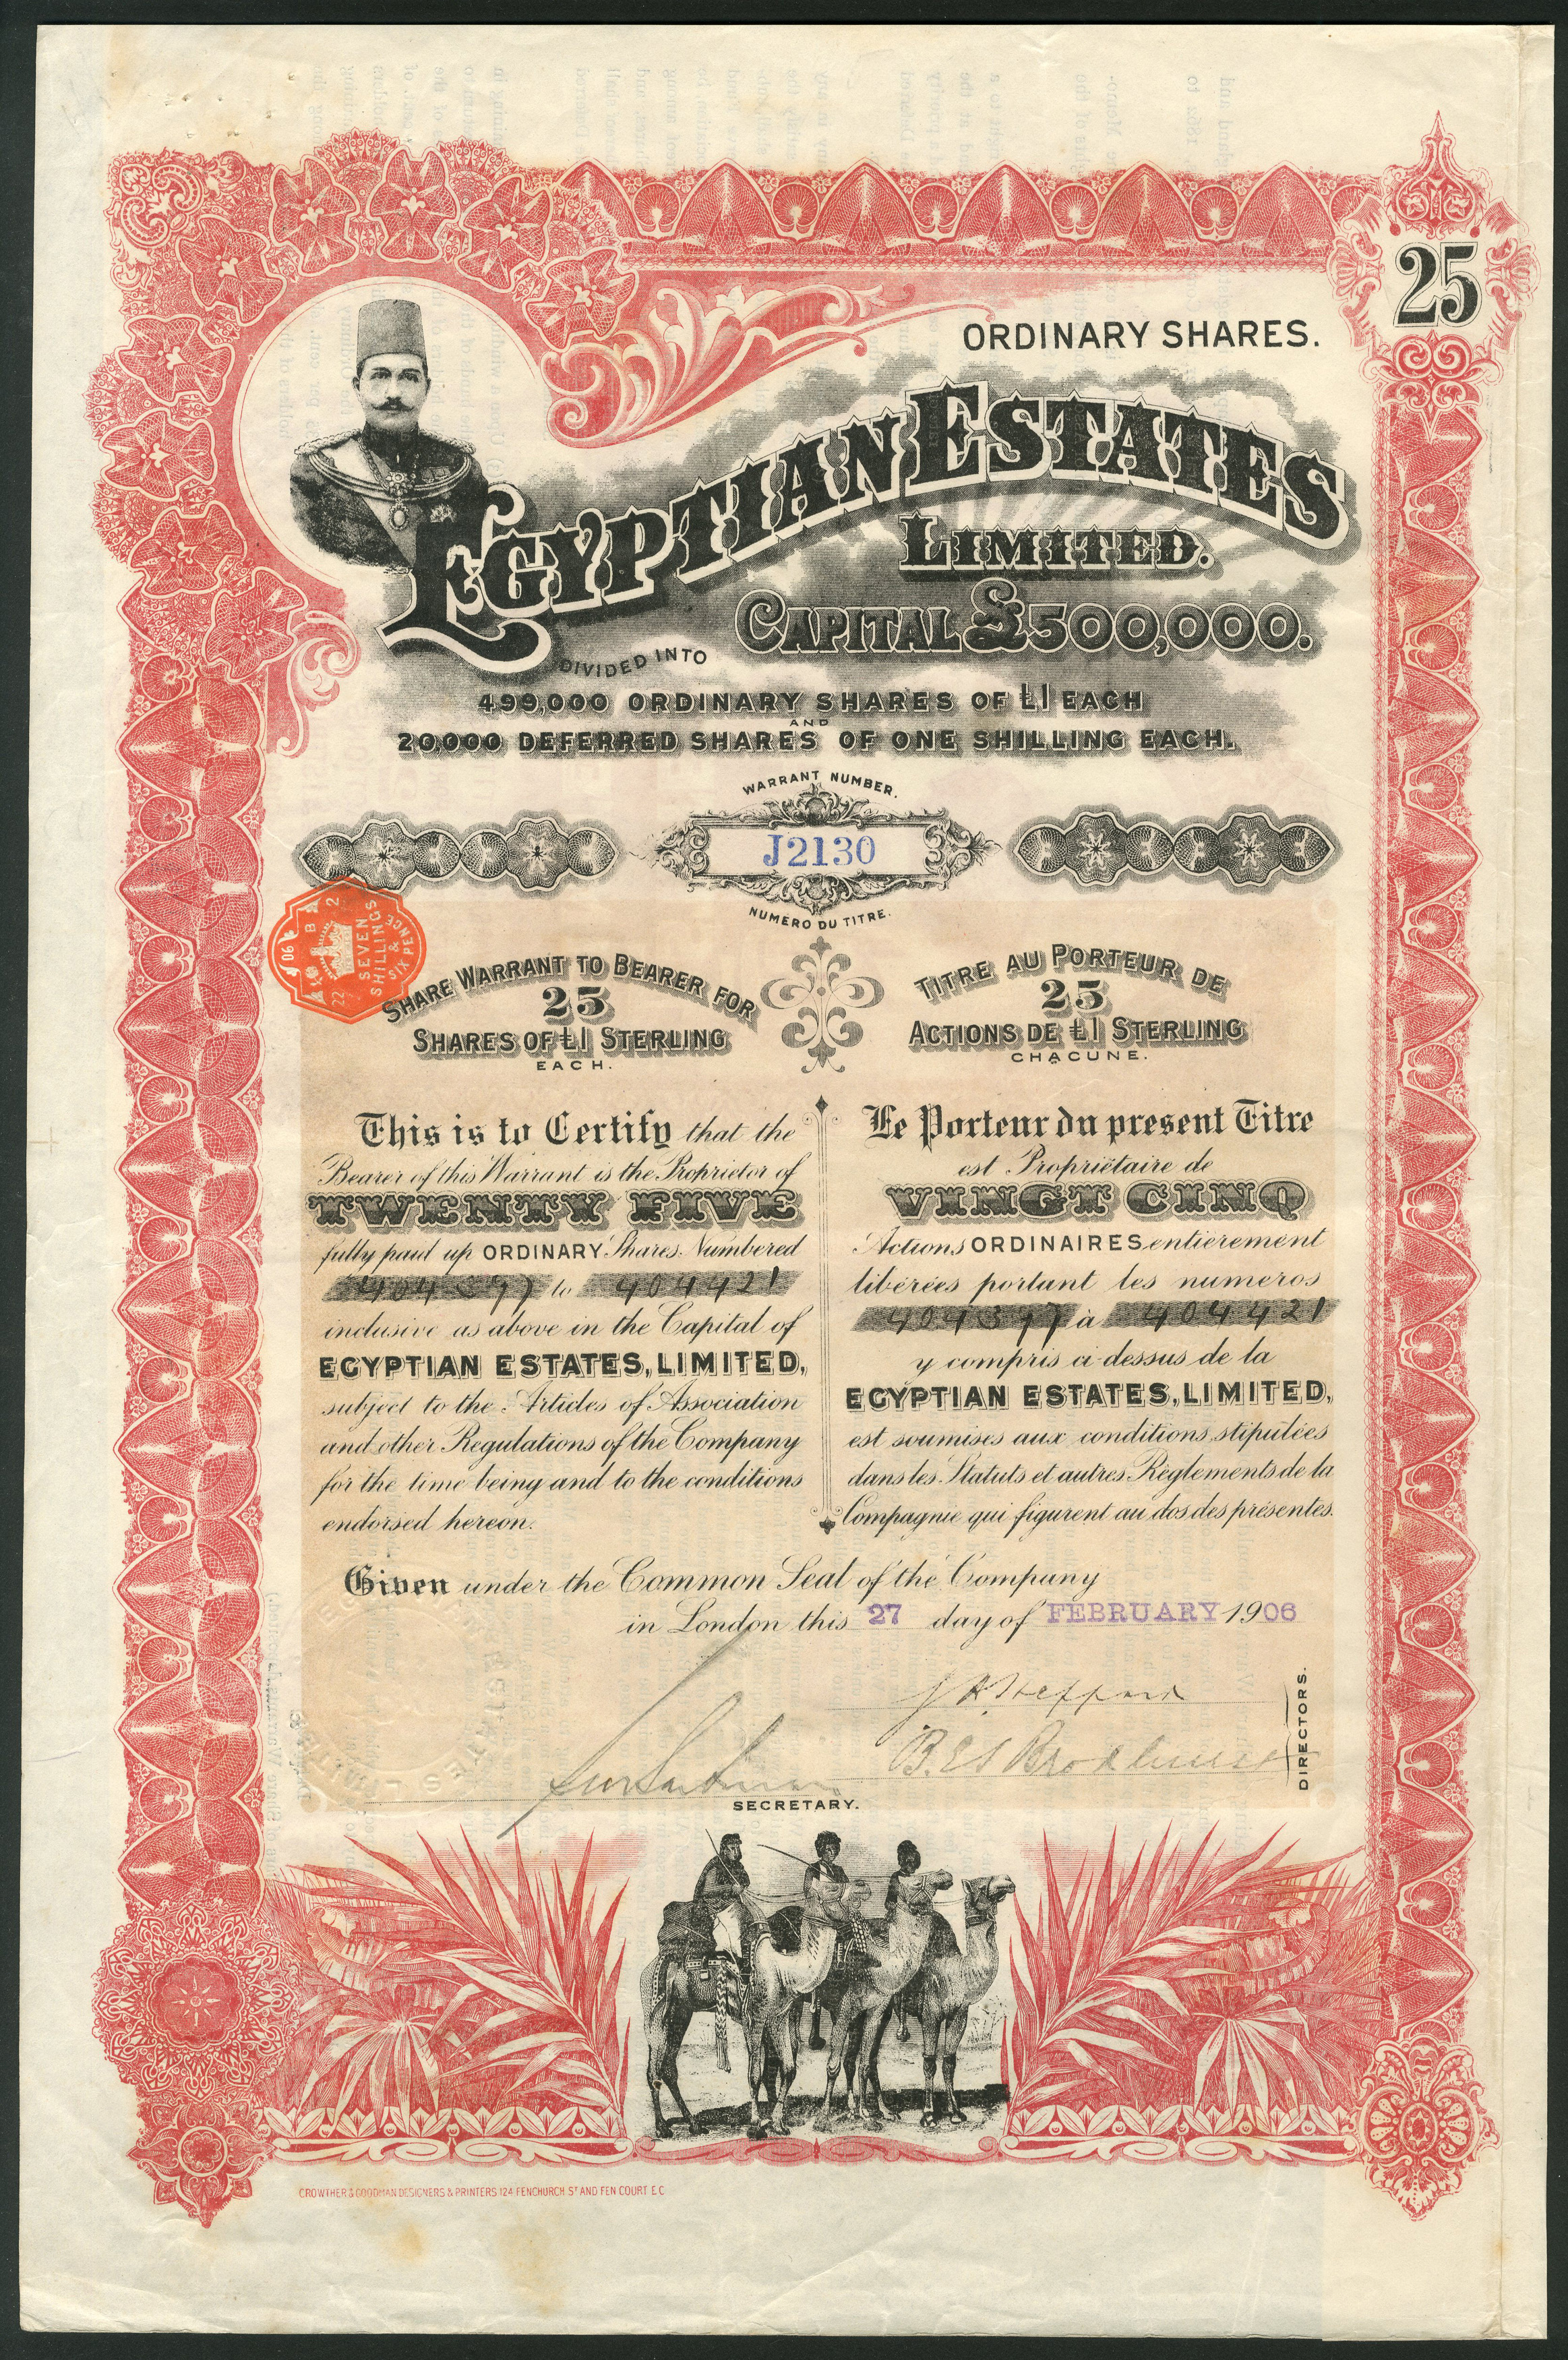 25
ORDINARY SHARES.
EGYPTIAN ESTATES
LIMITED.
CAPITAL £500,000.
DIVIDED INTO
499,000 ORDINARY SHARES OF £1 EACH
AND
20,000 DEFERRED SHARES OF ONE SHILLING EACH.
WARRANT NUMBER.
J2130
NUMERO DU TITRE.
SEVEN
SHILLINGS
&
SIX PENCE
SHARE WARRANT TO BEARER FOR
25
SHARES OF £1 STERLING
EACH.
This is to Certify that the
Bearer of this Warrant is the Proprietor of
TWENTY FIVE
fully paid up ORDINARY Shares Numbered
404397 to 404421
inclusive as above in the Capital of
EGYPTIAN ESTATES, LIMITED,
subject to the Articles of Association
and other Regulations of the Company
for the time being and to the conditions
endorsed hereon.
TITRE AU PORTEUR DE
25
ACTIONS DE £1 STERLING
CHACUNE.
Le Porteur du present Titre
est Propriétaire de
VINGT CINQ
Actions ORDINAIRES entièrement
libérées portant les numeros
404397 à 404421
y compris ci-dessus de la
EGYPTIAN ESTATES, LIMITED,
est soumises aux conditions stipulées
dans les Statuts et autres Règlements de la
Compagnie qui figurent au dos des présentes.
Given under the Common Seal of the Company
in London this 27 day of FEBRUARY 1906
J H Heppard
DIRECTORS.
SECRETARY.
CROWTHER & GOODMAN DESIGNERS & PRINTERS 124 FENCHURCH ST AND FEN COURT E.C